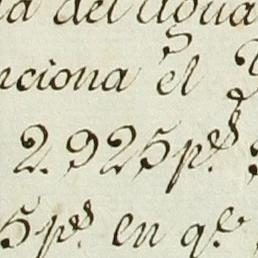 del agua
nciona el
2.925 p.s
5 p.s en q.e